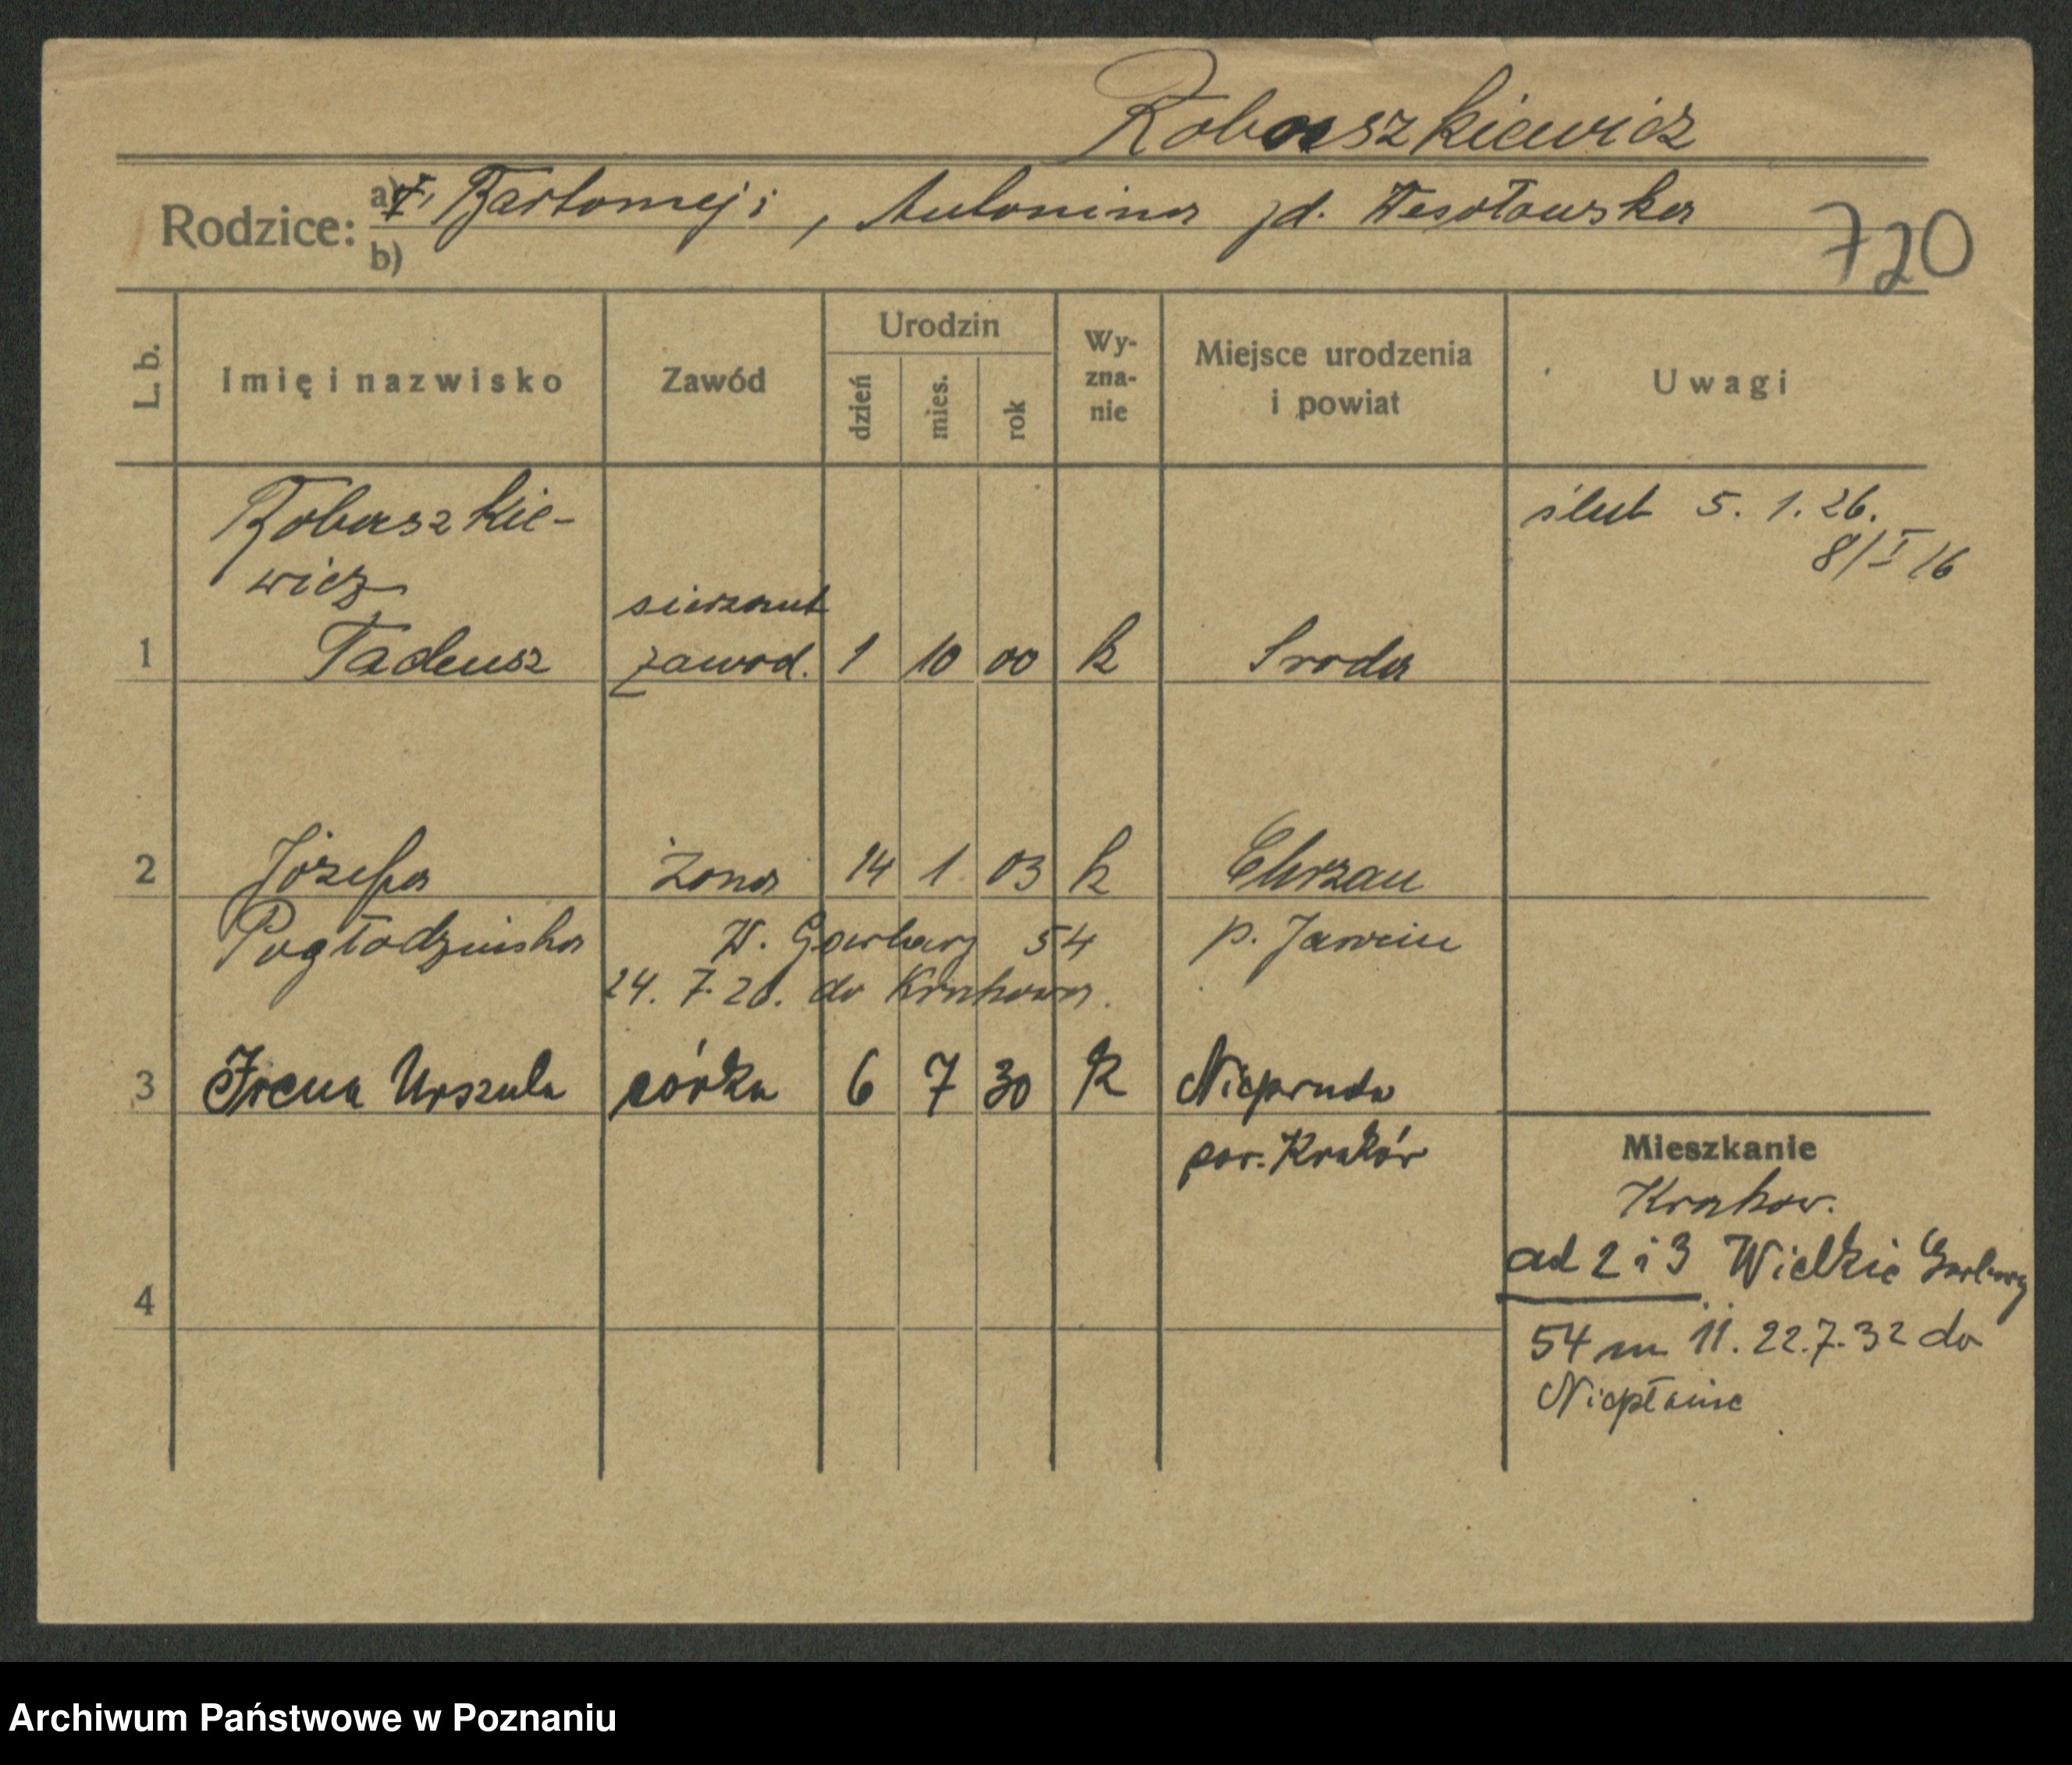 Robaszkiewicz
Rodzice: a) Bartomeji, Antonina jd. Wesołowska
b)
720
L. b.
Imię i nazwisko
Zawód
Urodzin
dzień
mies.
rok
Wy-
zna-
nie
Miejsce urodzenia
i powiat
Uwagi
Robaszkie-
wicz
ślub 5. 1. 26.
8/I
sierzant
1 Tadeusz zawod. 1 10 00 k Sroda
2 Józefa żona 14 1 03 k Chrzan
W. Garbary 54 p. Jarocin
24. 7. 26. do Krakowa.
3 Irena Urszula córka 6 7 30 k
pow. Kraków
Mieszkanie
Krakow.
ad 2 i 3 Wielkie Garbary
4
54 m 11. 22.7.32 do
Archiwum Państwowe w Poznaniu